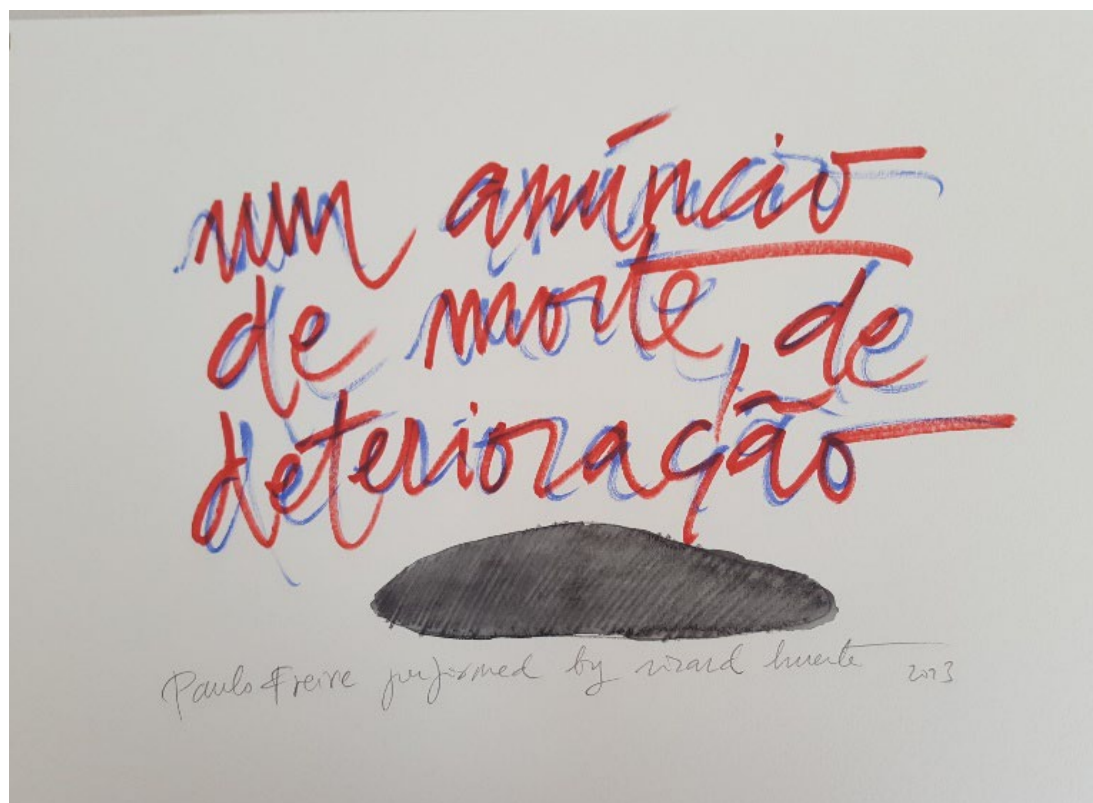 um anúncio
de morte, de
deterioração
Paulo Freire performed by ricard huerta 2023